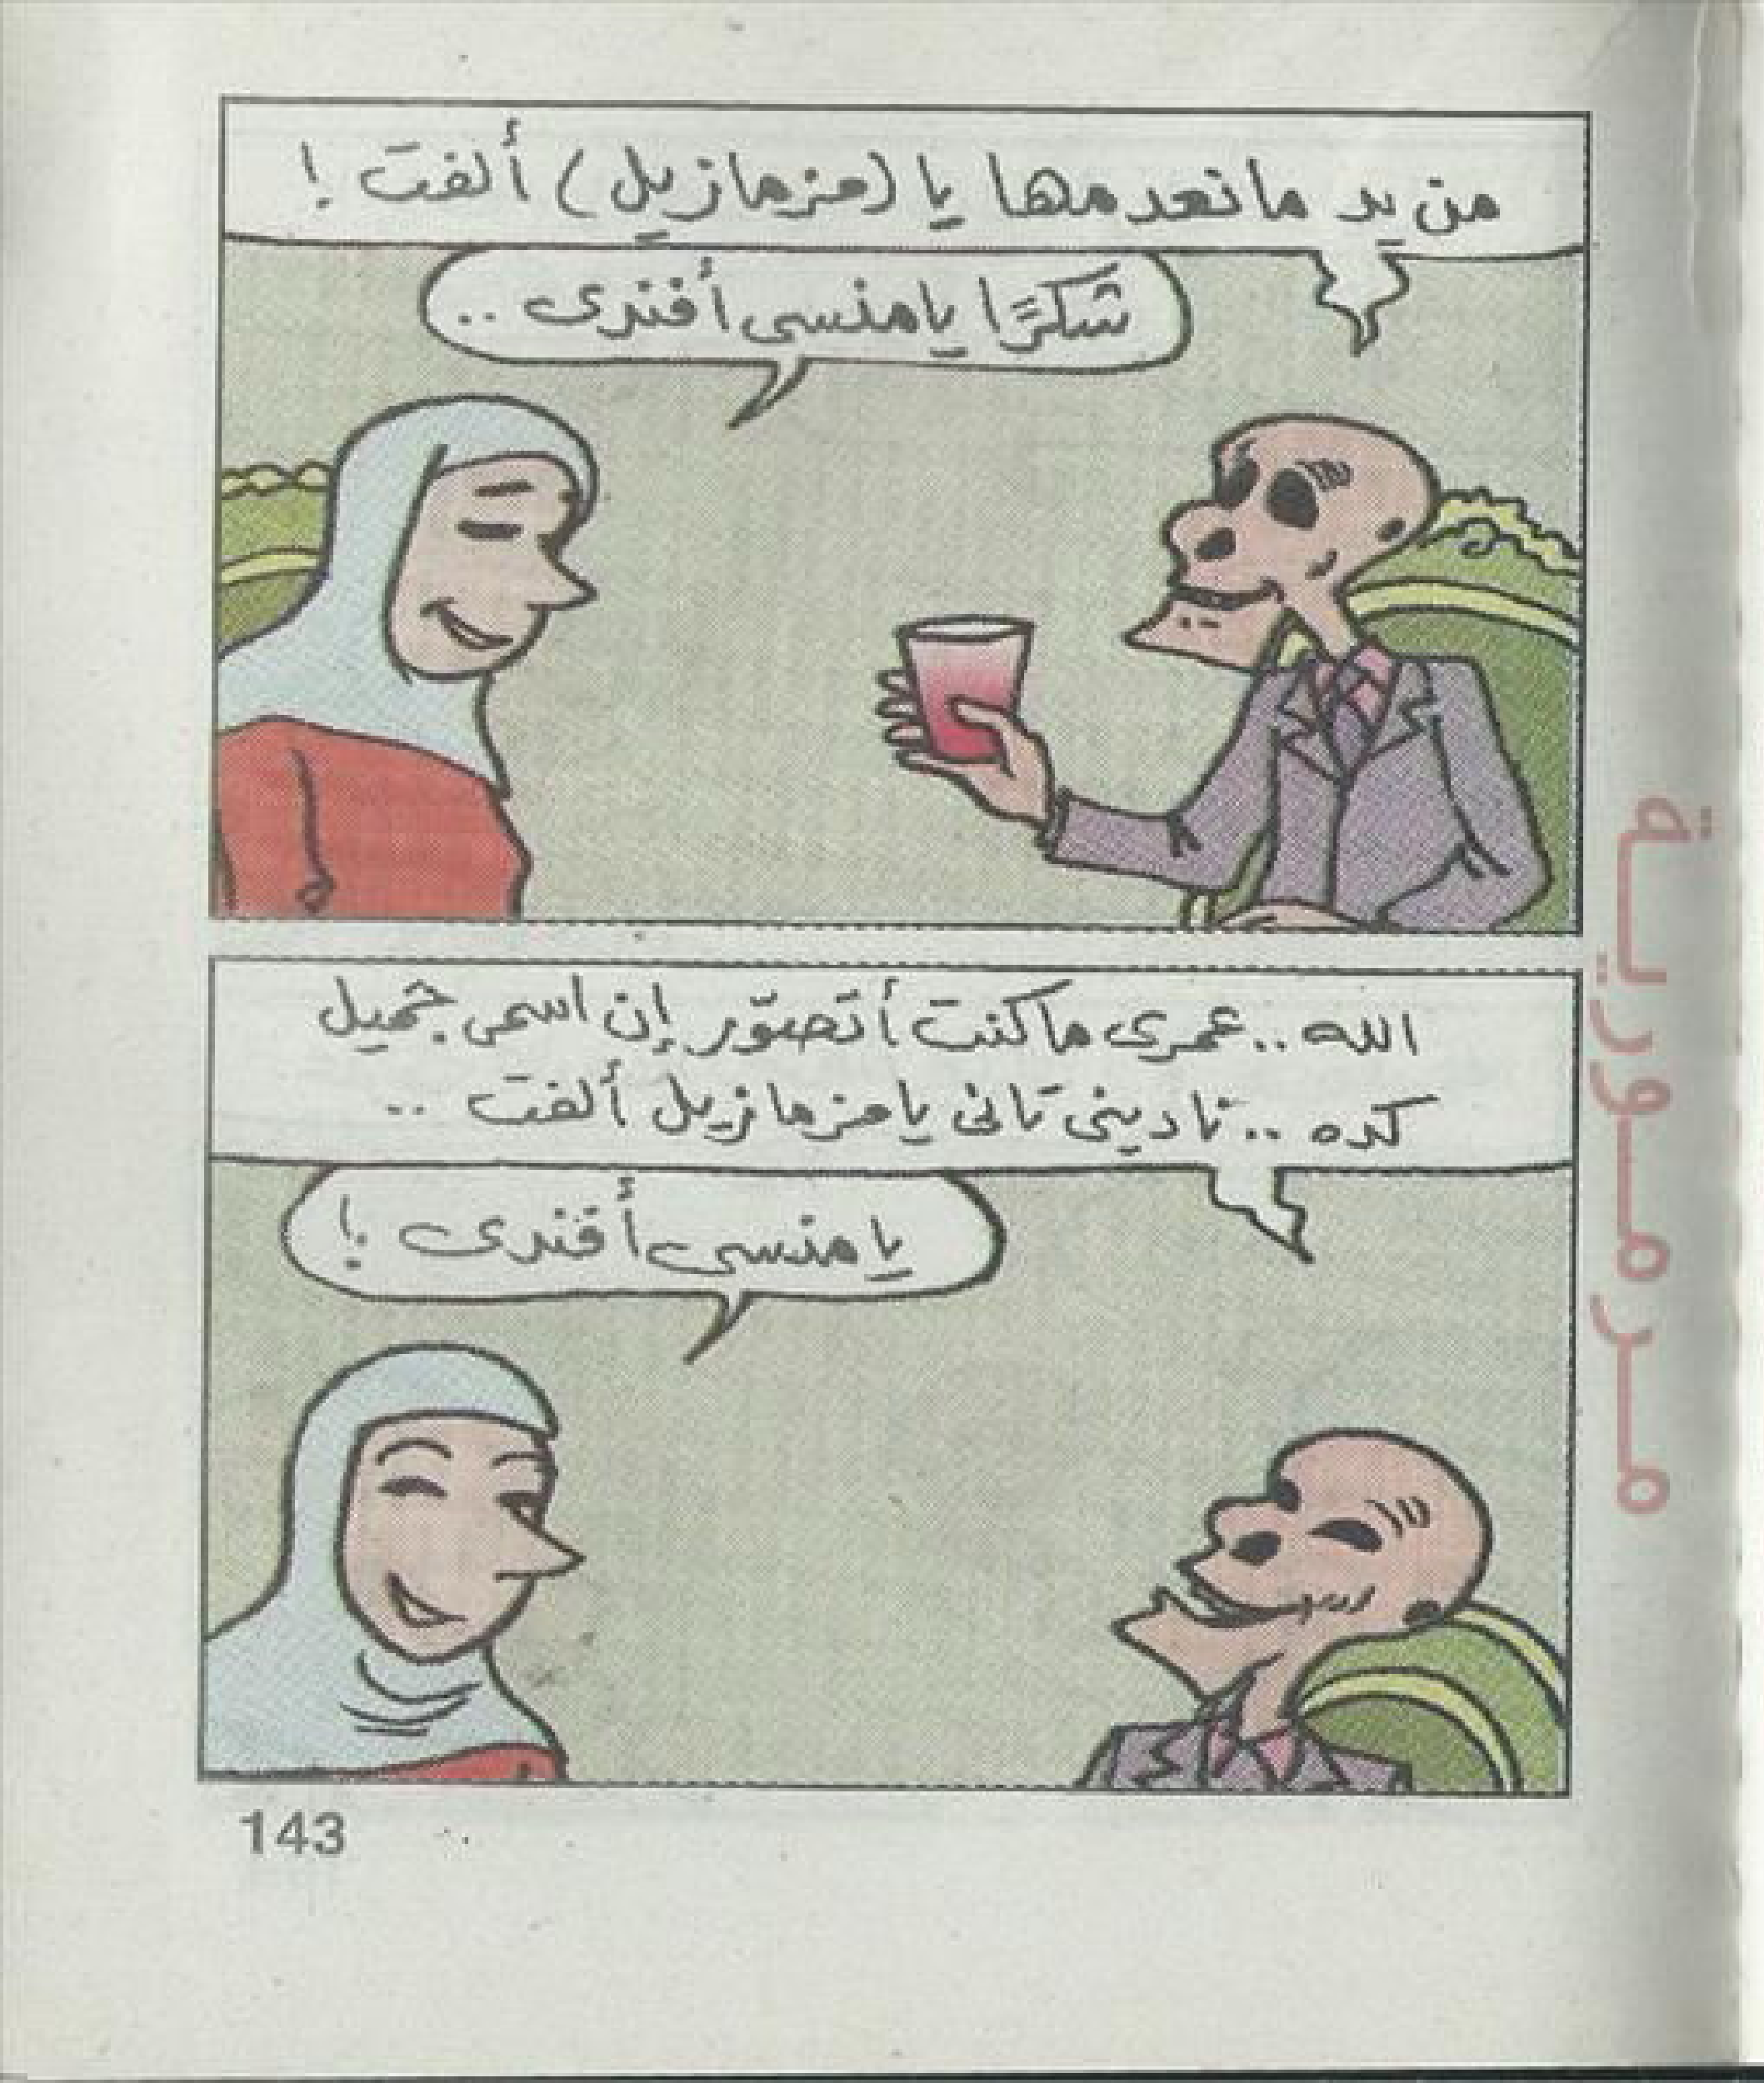 من يد ما نعدمها يا (مزمازيل) ألفت !
شكرًا يا منسى أفندى ..
الله .. عمرى ما كنت أتصوّر إن اسمى جميل
كده .. نادينى تانى يا مزمازيل ألفت ..
يا منسى أفندى !
143
مرمورية